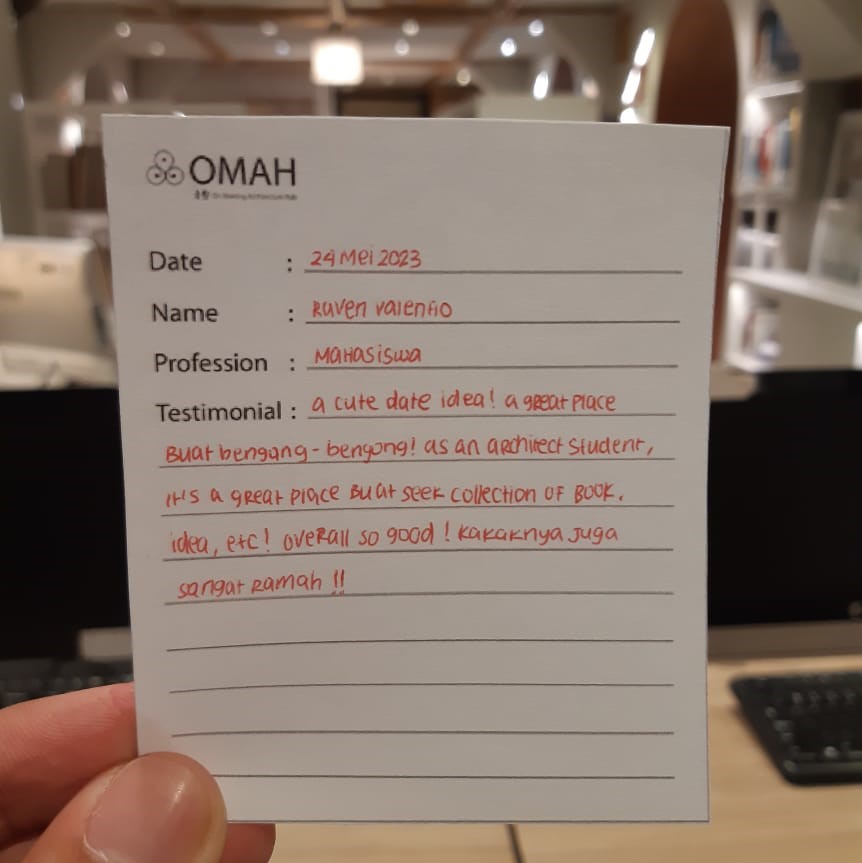 OMAH
Date : 24 Mei 2023
Name : Raven Valentio
Profession : Mahasiswa
Testimonial : a cute date idea! a great place
buat bengong-bengong! as an architect student,
it's a great place buat seek collection of book,
idea, etc! overall so good! kakaknya juga
sangat ramah!!